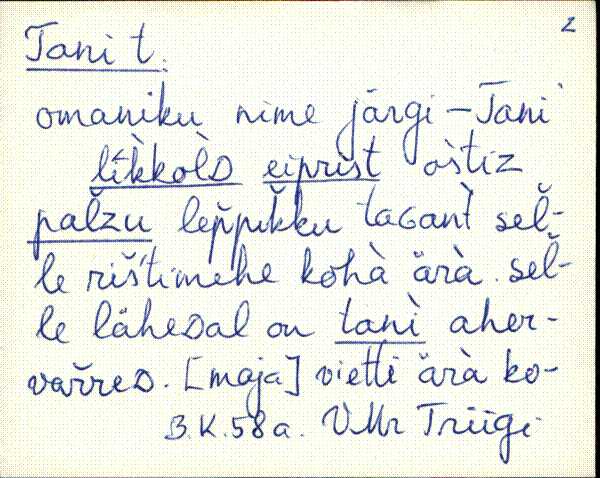 2
Tani t.
omaniku nime järgi – Tani
lìkkolD eiprist oštiz
palžu leppikku taGant sel-
le rištimehe kohà ärà. sel-
le läheDal on tanì aher-
varreD. [maja] vietti ärà ko-
B.K. 58a. VMr Triigi